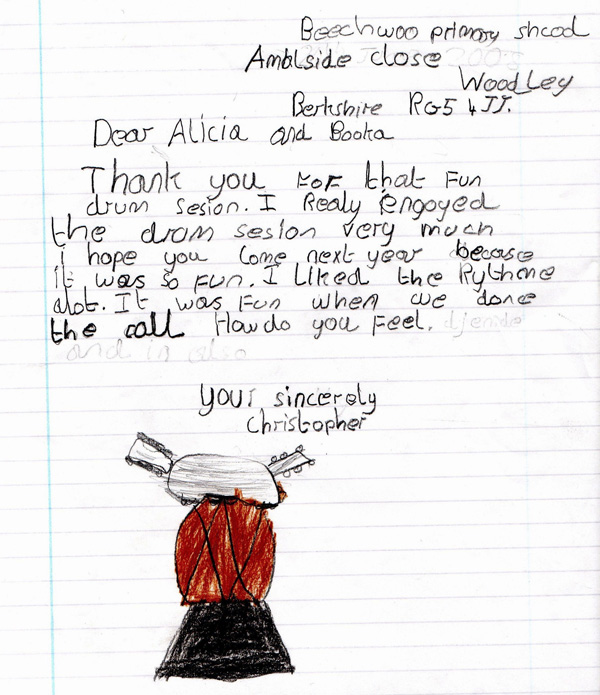 Beechwoo primary shcool
Amblside close
Woodley
Berkshire RG5 4JJ.
Dear Alicia and Booka
Thank you For that Fun
drum sesion. I Realy Engoyed
the drum sesion very much
i hope you Come next year becase
it was so Fun. I Liked the Rythme
alot. It was Fun when we done
the call How do you Feel.
and in also
Your sincerely
Christopher